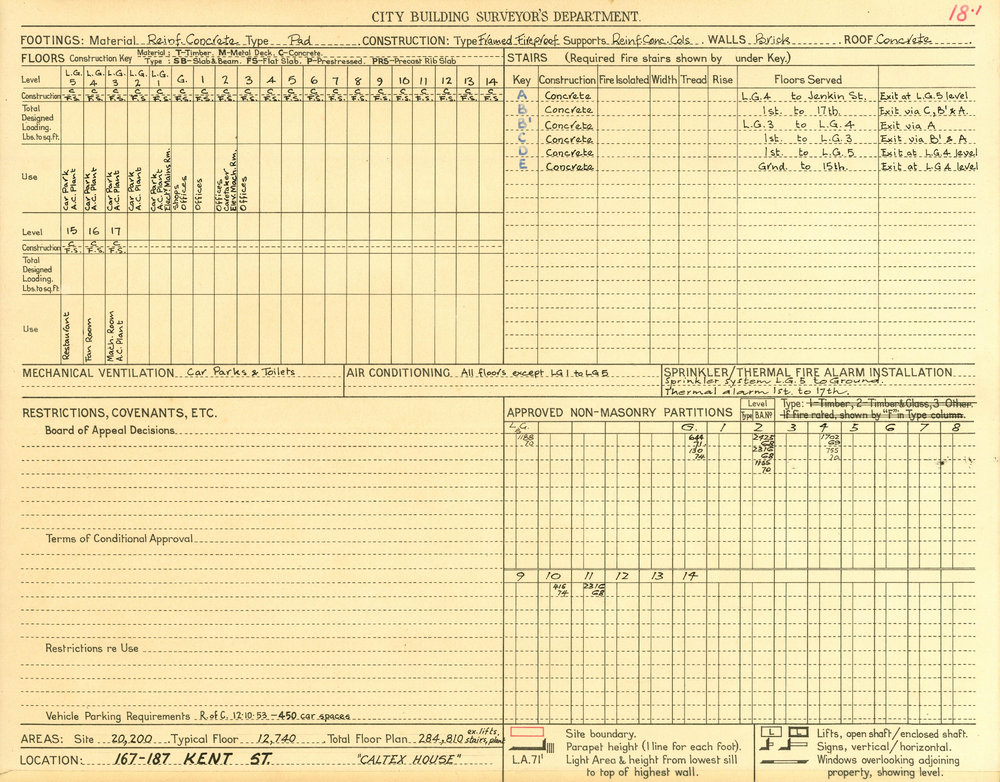 CITY BUILDING SURVEYOR'S DEPARTMENT.
18.1
FOOTINGS: Material Reinf. Concrete Type Pad CONSTRUCTION: Type Framed Fireproof Supports Reinf. Conc. Cols WALLS Brick ROOF Concrete
FLOORS Construction Key Material : T-Timber. M-Metal Deck. C-Concrete.
Type : SB-Slab & Beam. FS-Flat Slab. P-Prestressed. PRS-Precast Rib Slab
Level L.G. 5 L.G. 4 L.G. 3 L.G. 2 L.G. 1 G. 1 2 3 4 5 6 7 8 9 10 11 12 13 14
Construction C F.S. C F.S. C F.S. C F.S. C F.S. C F.S. C F.S. C F.S. C F.S. C F.S. C F.S. C F.S. C F.S. C F.S. C F.S. C F.S. C F.S. C F.S. C F.S. C F.S.
Total Designed Loading. Lbs. to sq. ft.
Use
Car Park A.C. Plant
Car Park A.C. Plant
Car Park A.C. Plant
Car Park A.C. Plant
Car Park A.C. Plant Elect. Mains Rm.
Shops Offices
Offices
Offices Caretaker Elev. Mach. Rm.
Offices
Level 15 16 17
Construction C F.S. C F.S. C F.S.
Total Designed Loading. Lbs. to sq. ft
Use
Restaurant
Fan Room
Mach. Room A.C. Plant
STAIRS (Required fire stairs shown by under Key.)
Key Construction Fire Isolated Width Tread Rise Floors Served
A Concrete L.G.4 to Jenkin St. Exit at L.G.5 level
B Concrete 1st. to 17th. Exit via C, B' & A
B' Concrete L.G.3 to L.G.4 Exit via A
C Concrete 1st. to L.G.3 Exit via B' & A
D Concrete 1st. to L.G.5 Exit at L.G.4 level
E Concrete Grnd. to 15th. Exit at L.G.4 level
MECHANICAL VENTILATION Car Parks & Toilets
AIR CONDITIONING All floors except LG1 to LG5
SPRINKLER/THERMAL FIRE ALARM INSTALLATION
Sprinkler system L.G.5 to Ground.
Thermal alarm 1st. to 17th.
RESTRICTIONS, COVENANTS, ETC.
Board of Appeal Decisions
Terms of Conditional Approval
Restrictions re Use
Vehicle Parking Requirements R. of C. 12.10.53 – 450 car spaces
APPROVED NON-MASONRY PARTITIONS Level Type B.A. Nº Type: 1-Timber, 2-Timber & Glass, 3 Other.
If fire rated, shown by "F" in Type column.
L.G. G. 1 2 3 4 5 6 7 8
1188 70
644 71
130 74
2428 68
2316 68
1155 70
1702 69
755 70
9 10 11 12 13 14
416 74
2316 68
AREAS: Site 20,200 Typical Floor 12,740 Total Floor Plan 284,810 ex. lifts, stairs, plant
LOCATION: 167-187 KENT ST. "CALTEX HOUSE"
Site boundary.
Parapet height (1 line for each foot).
L.A.71' Light Area & height from lowest sill
to top of highest wall.
L Lifts, open shaft/enclosed shaft.
Signs, vertical/horizontal.
Windows overlooking adjoining
property, showing level.